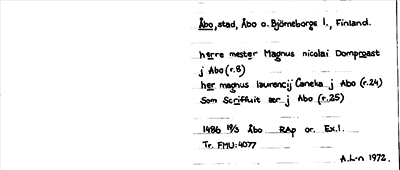 Åbo, stad, Åbo o. Björneborgs l., Finland.
herre mester Magnus nicolai Domproast
j Abo (r.8)
her magnus laurencij Caneka j Abo (r.24)
Som Scriffuit ær j Abo (r.25)
1486 19/3 Åbo RAp or. Ex.1.
Tr. FMU:4077
A.L-n 1972.